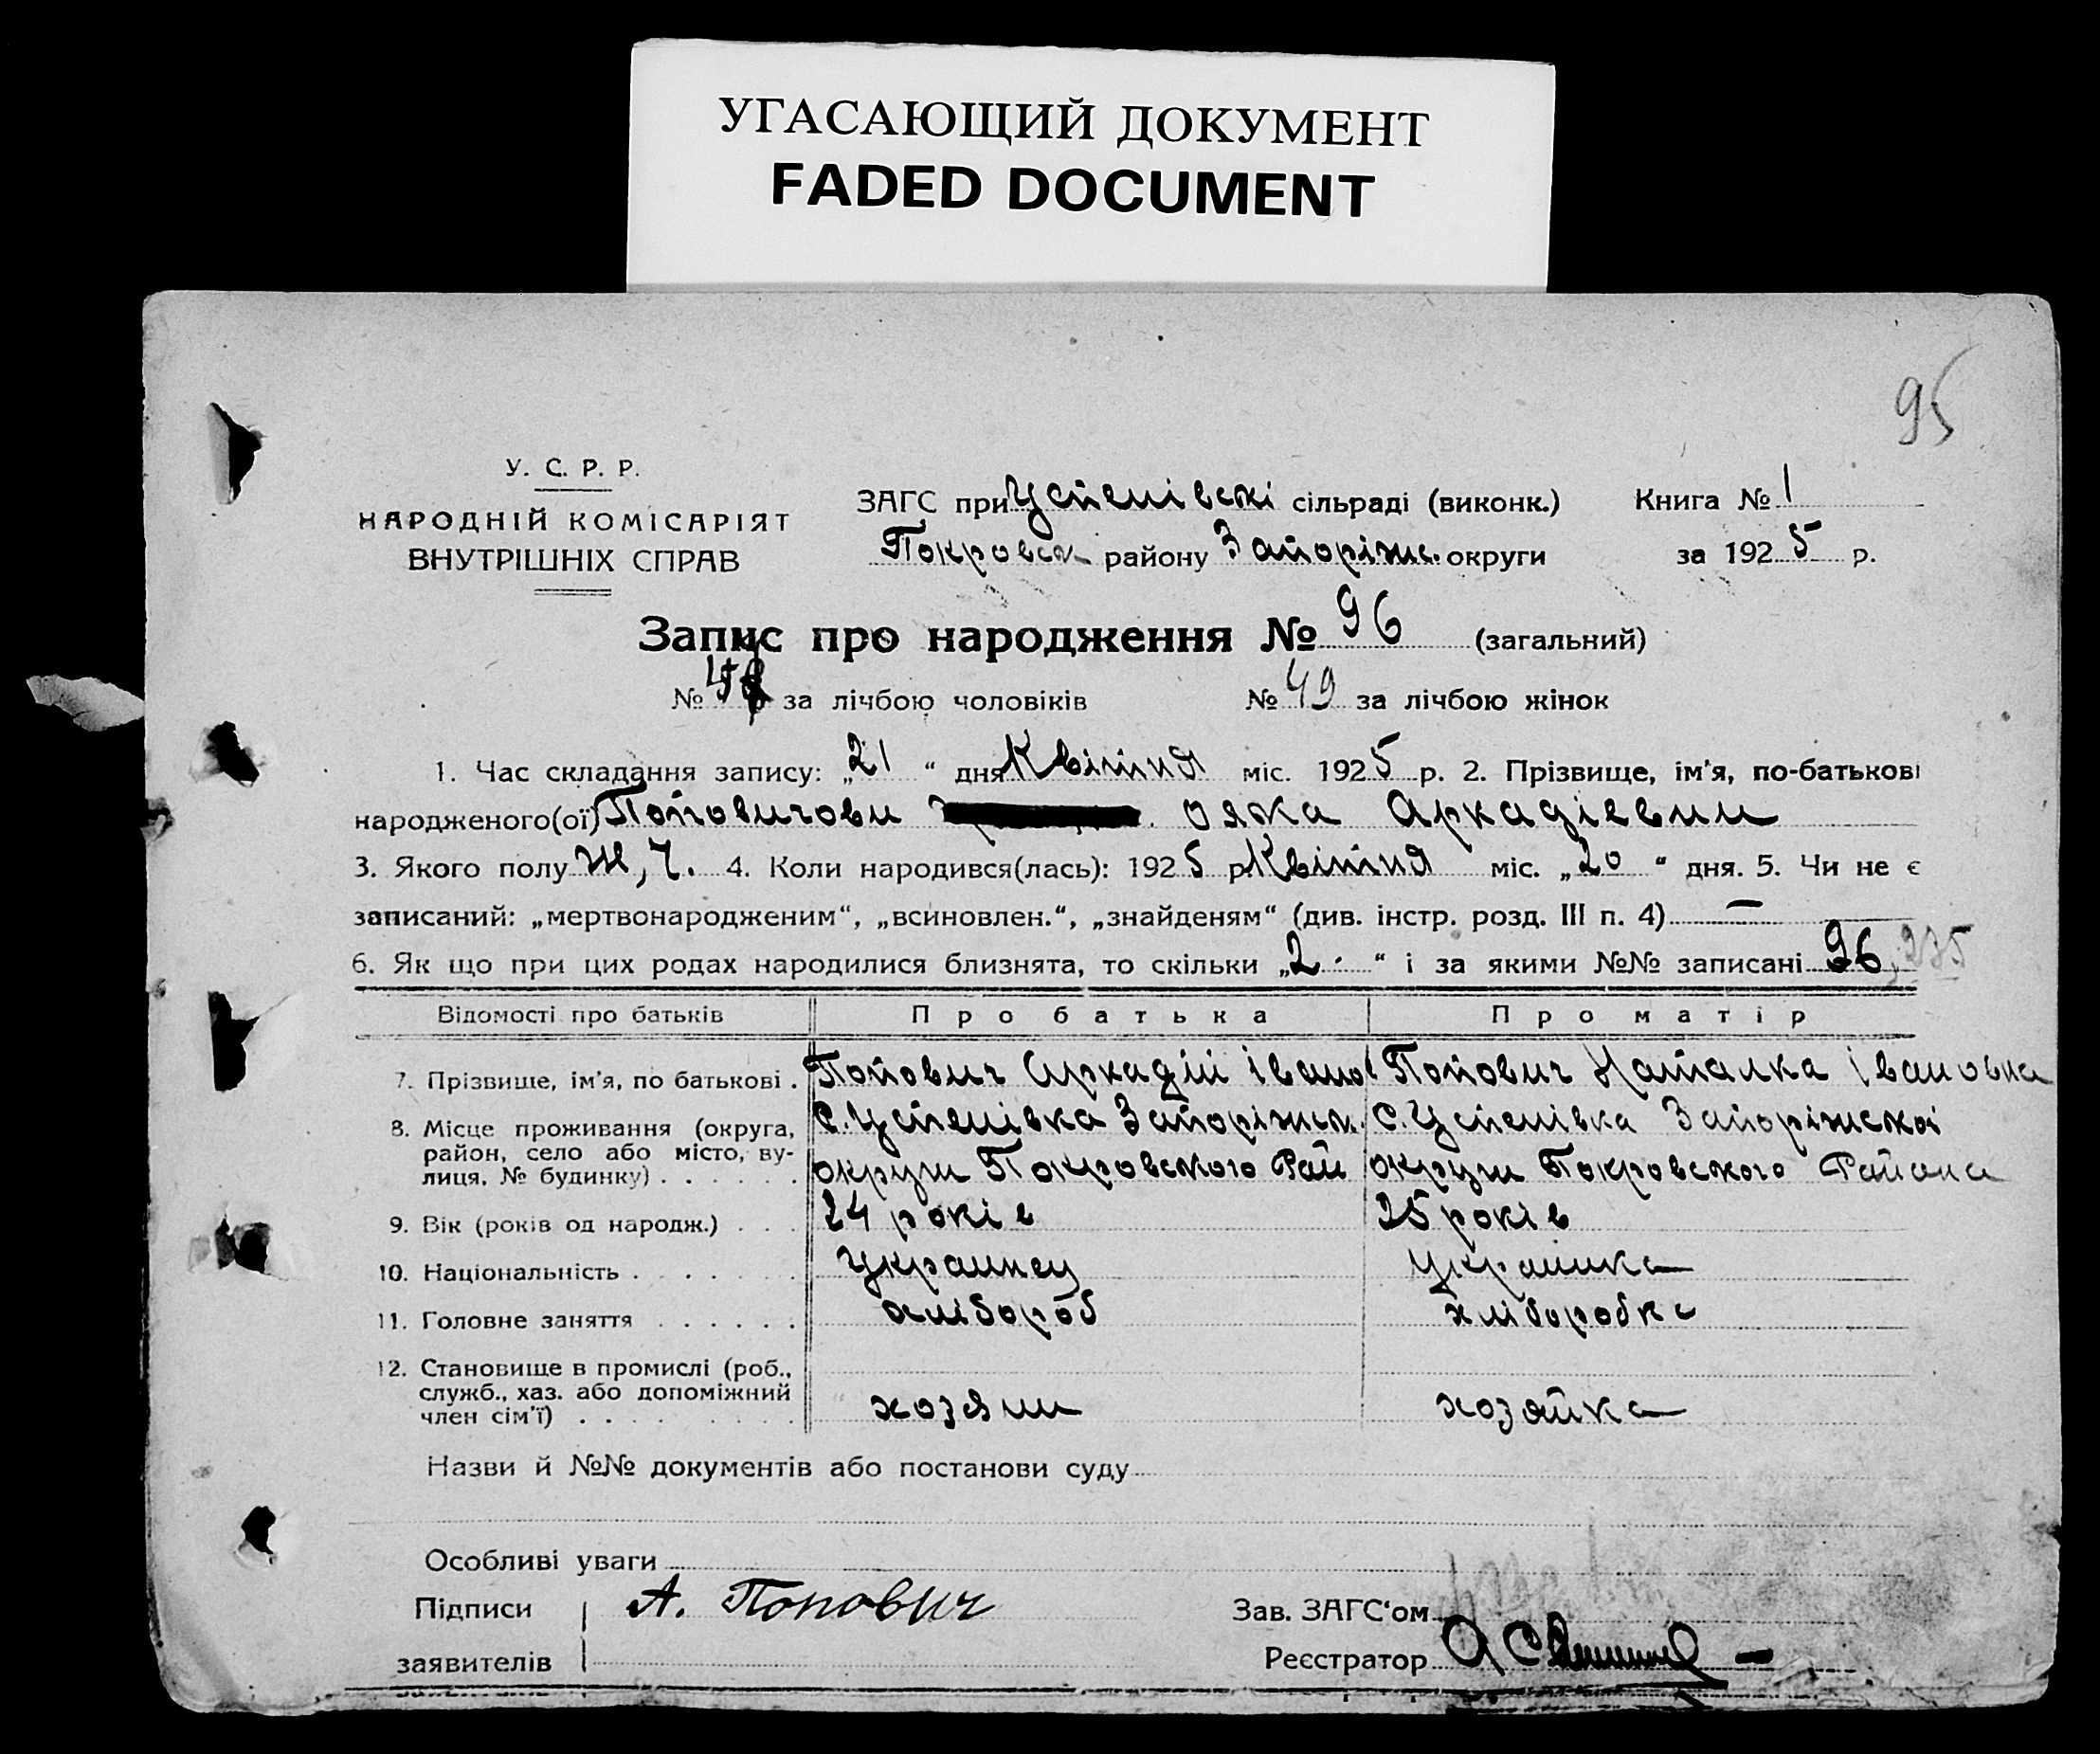 УГАСАЮЩИЙ ДОКУМЕНТ
FADED DOCUMENT
95
У. С. Р. Р.
НАРОДНІЙ КОМІСАРІЯТ
ВНУТРІШНІХ СПРАВ
ЗАГС при Успенівскі сільраді (виконк.)
Покровск району Запоріжс. округи
Книга № 1
за 1925 р.
Запис про народження № 96 (загальний)
№ за лічбою чоловіків № 49 за лічбою жінок
1. Час складання запису: „21“ дня Квітня міс. 1925 р. 2. Прізвище, ім'я, по-батькові
народженого(ої) Поповичови Аркадієвии
3. Якого полу Ж, Ч. 4. Коли народився(лась): 1925 р. Квітня міс. „20“ дня. 5. Чи не є
записаний: „мертвонародженим“, „всиновлен.“, „знайденям“ (див. інстр. розд. III п. 4) —
6. Як що при цих родах народилися близнята, то скільки „2.“ і за якими №№ записані 96,
Відомості про батьків Про батька Про матір
7. Прізвище, ім'я, по батькові . Попович Аркадій Іванов Попович Наталка Івановна
8. Місце проживання (округа, район, село або місто, вулиця, № будинку) . . . . . .
С. Успенівка Запоріжск. С. Успенівка Запоріжскої
округи Покровского Рай округи Покровского Района
9. Вік (років од народж.) . . . 24 років 25 років
10. Національність . . . . . . . Украинец Украинка
11. Головне заняття . . . . . . хлібороб хліборобка
12. Становище в промислі (роб., служб., хаз. або допоміжний член сім'ї) . . . . . . . .
хозяин хозяйка
Назви й №№ документів або постанови суду
Особливі уваги
Підписи А. Попович Зав. ЗАГС'ом
заявителів Реєстратор